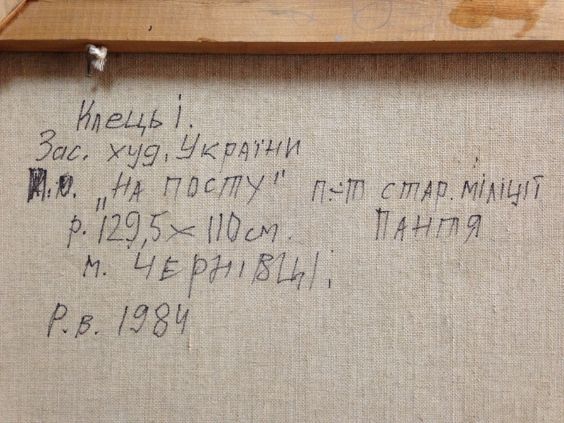 Клець І.
Зас. худ. України
п.о. „НА ПОСТУ" п-т стар. міліції
р. 129,5 × 110 см. ПАНТЯ
м. ЧЕРНІВЦІ.
Р.в. 1984